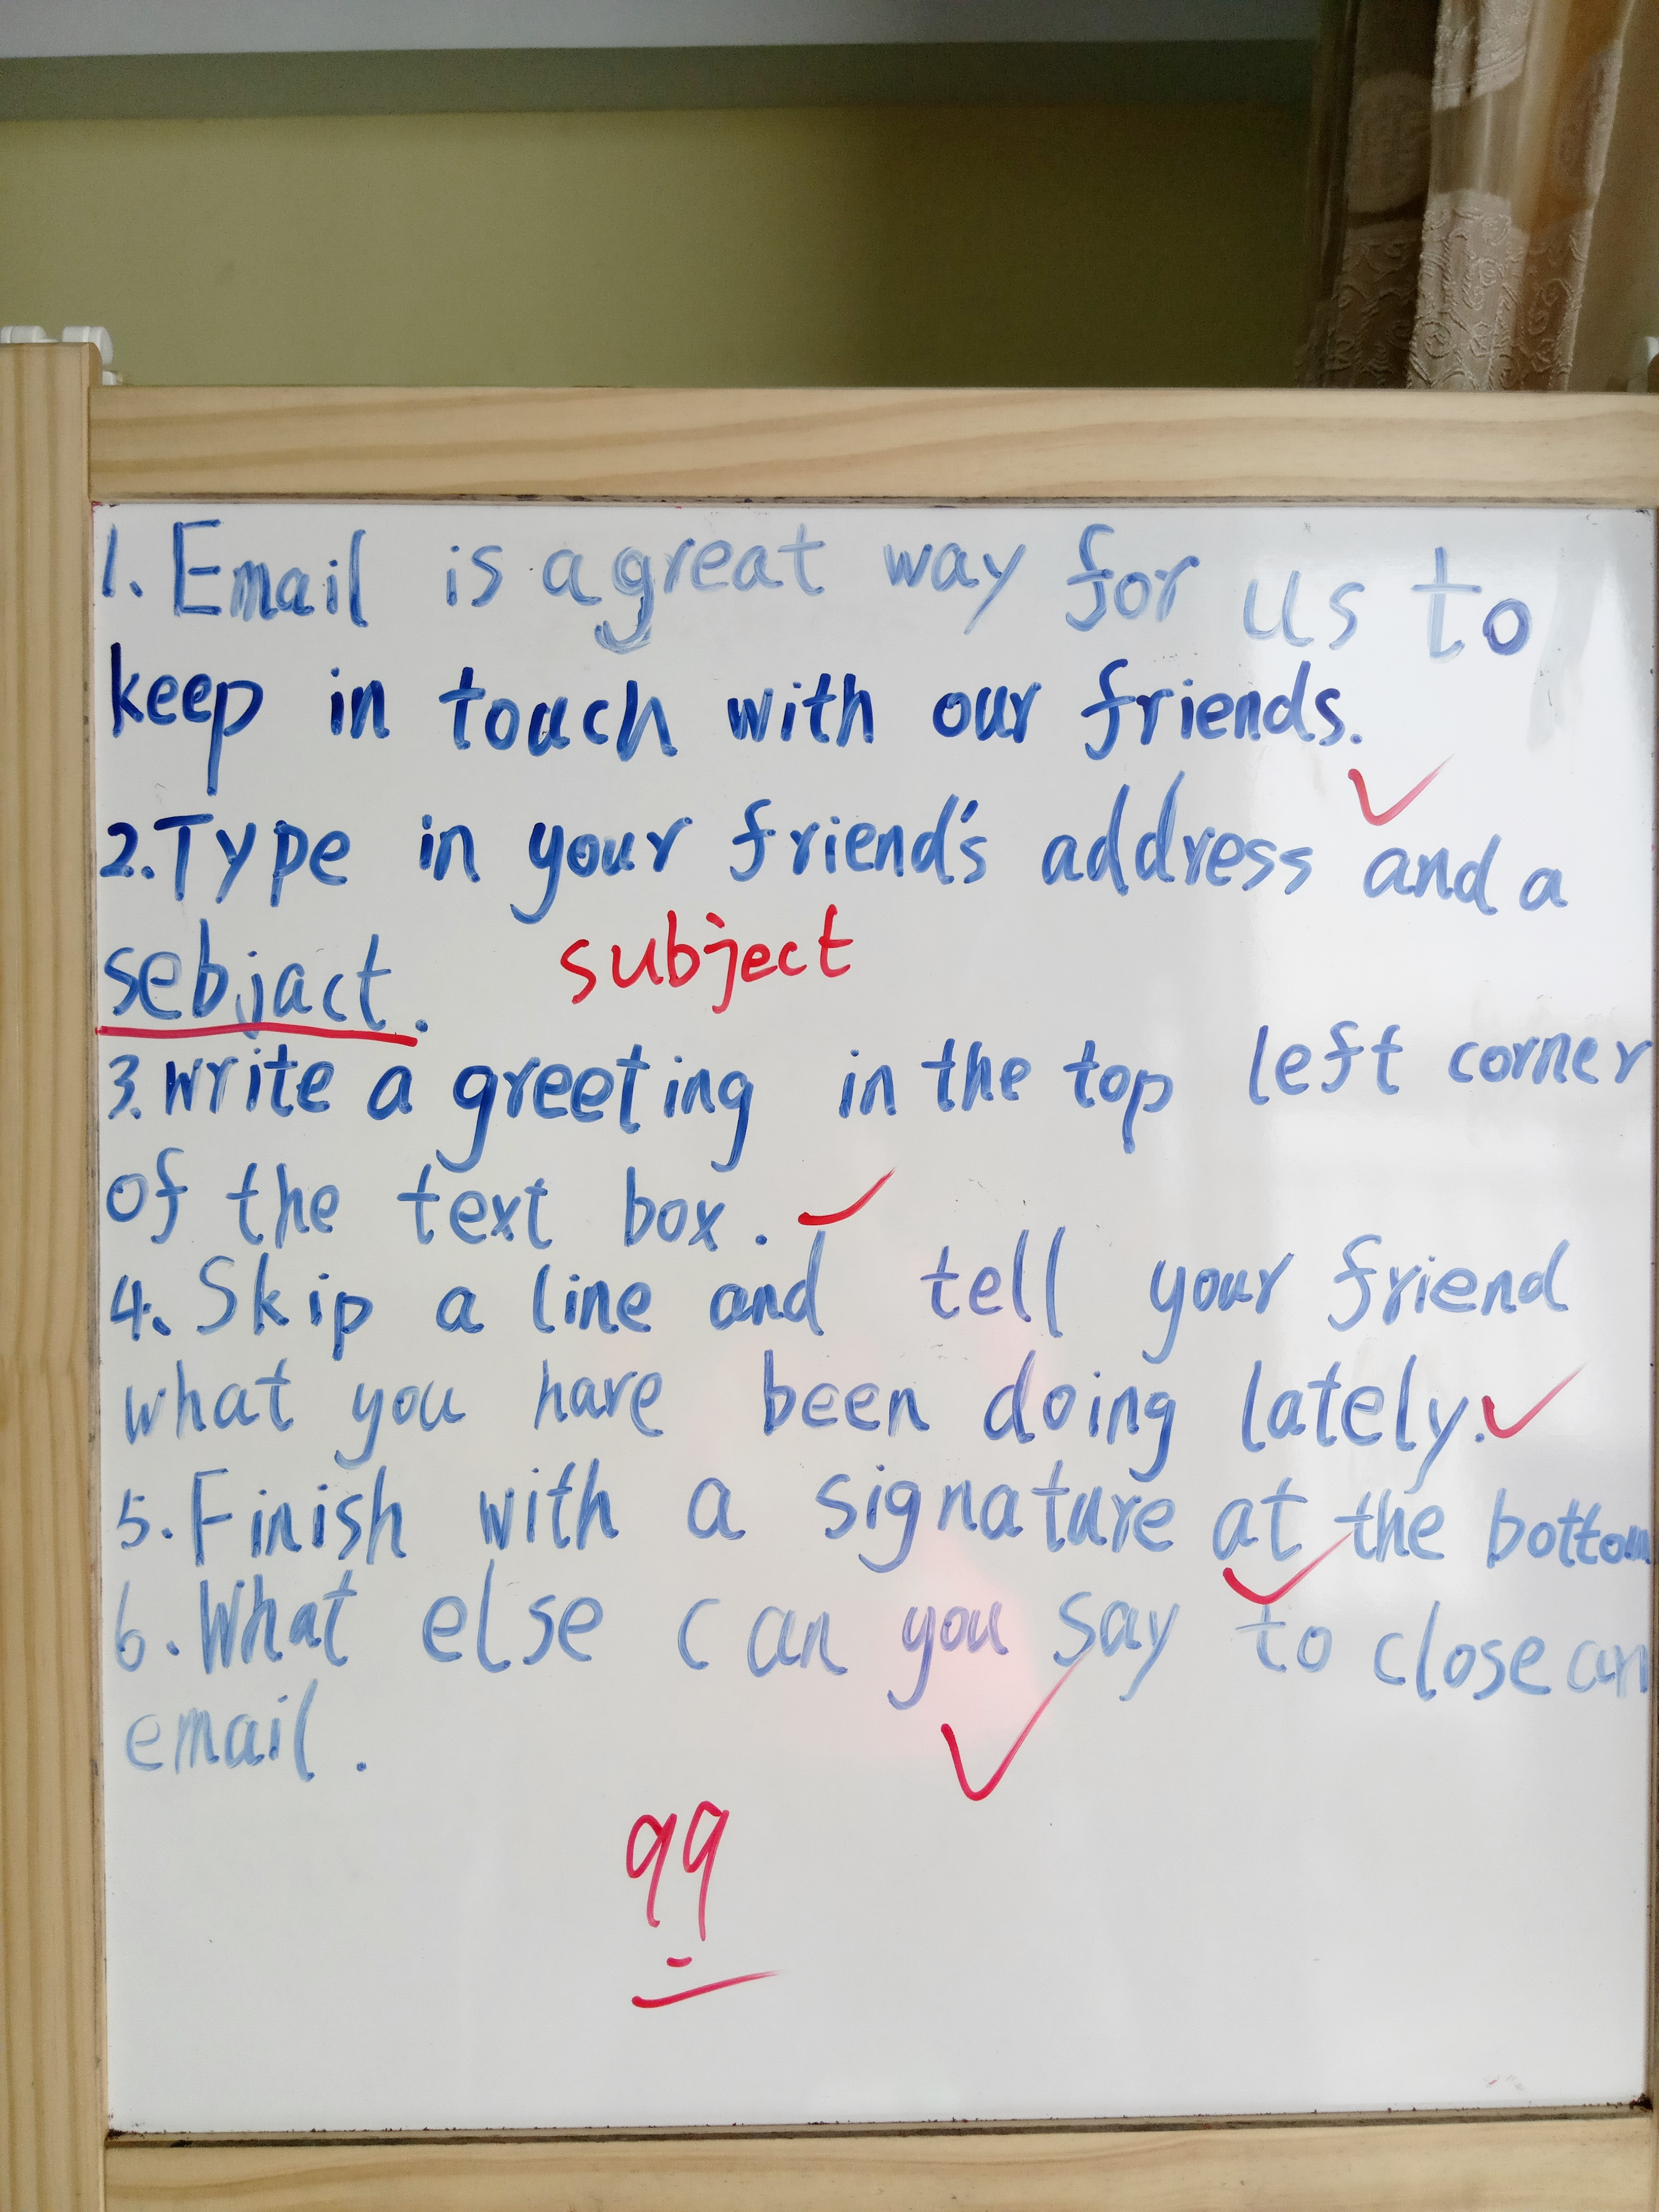 1. Email is a great way for us to
keep in touch with our friends.
2. Type in your friend's address and a
sebjact. subject
3. write a greeting in the top left corner
of the text box.
4. Skip a line and tell your friend
what you have been doing lately.
5. Finish with a signature at the bottom
6. What else can you say to close an
email.
99